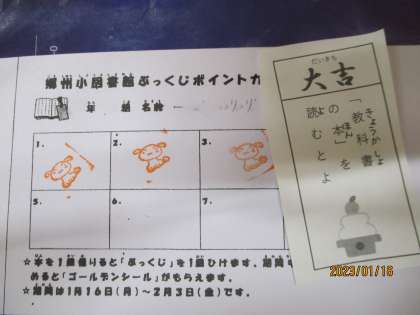 郷州小図書館ぶっくじポイントカ
年 組 名前
1. 2. 3.
5. 6. 7.
☆本を1冊借りると「ぶっくじ」を1回ひけます。期間
めると「ゴールデンシール」がもらえます。
☆期間は1月16日(月)～2月3日(金)です。
だいきち
大吉
「教科書
きょうかしょ
の本」を
ほん
読むとよ
よ
2023/01/16